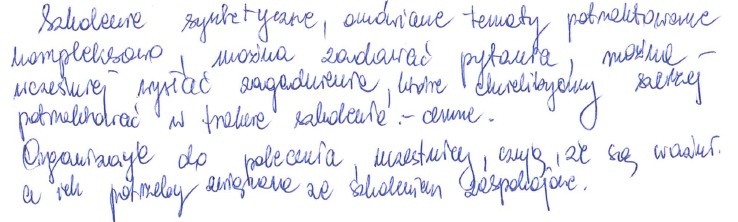 Szkolenie syntetyczne, omówiane tematy potraktowane
kompleksowo, można zadawać pytania, można -
wcześniej wysłać zagadnienia, które chcielibyśmy szerzej
potraktować w trakcie szkolenia. - cenne.
Organizacja do polecenia, uczestnicy, czują, że są ważni.
a ich potrzeby związane ze szkoleniem zaspokojone.